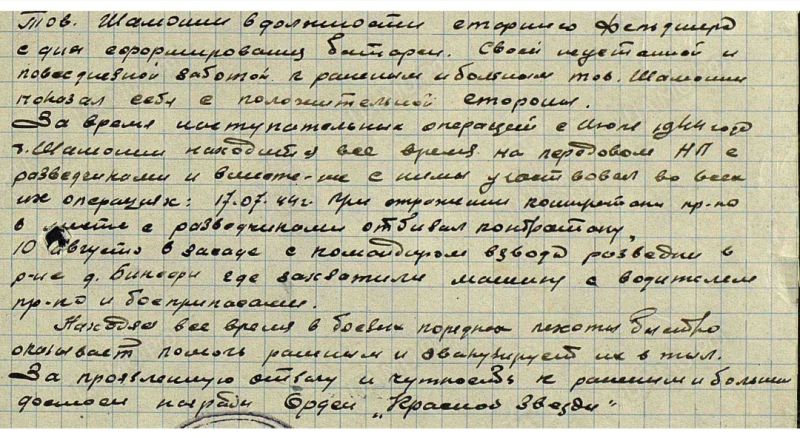 Тов. Шамошин в должности старшего фельдшера
с дня сформирования батареи. Своей неустанной и
повседневной заботой к раненым и больным тов. Шамошин
показал себя с положительной стороны.
За время наступательных операций с июля 1944 года
т. Шамошин находится все время на передовом НП с
разведчиками и вместе с ними участвовал во всех
их операциях: 17.07.44г. При отражении контратаки пр-ка
вместе с разведчиками отбивал контратаку
10 августа в засаде с командиром взвода разведки в
р-не д. где захватили машину с водителем
пр-ка и боеприпасами.
Находясь все время в боевых порядках пехоты быстро
оказывает помощь раненым и эвакуирует их в тыл.
За проявленную отвагу и чуткость к раненым и больным
достоин награды Орден „Красной Звезды"